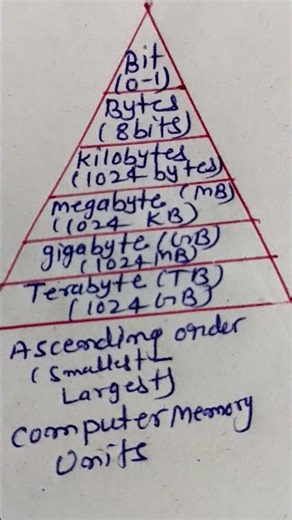 Bit
(0-1)
Bytes
(8bits)
Kilobytes
(1024 bytes)
megabyte (MB)
(1024 KB)
gigabyte (GB)
(1024 MB)
Terabyte (TB)
(1024 GB)
Ascending order
(Smallest-
Largest)
Computer Memory
Units